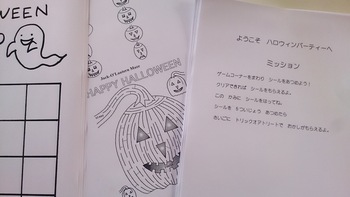 WEEN
Jack-O'Lantern Maze
HAPPY HALLOWEEN
ようこそ ハロウィンパーティーへ
ミッション
ゲームコーナーをまわり シールをあつめよう!
クリアできれば シールをもらえるよ。
この かみに シールをはってね。
シールを 5つ いじょう あつめたら
さいごに トリックオアトリートで おかしがもらえるよ。